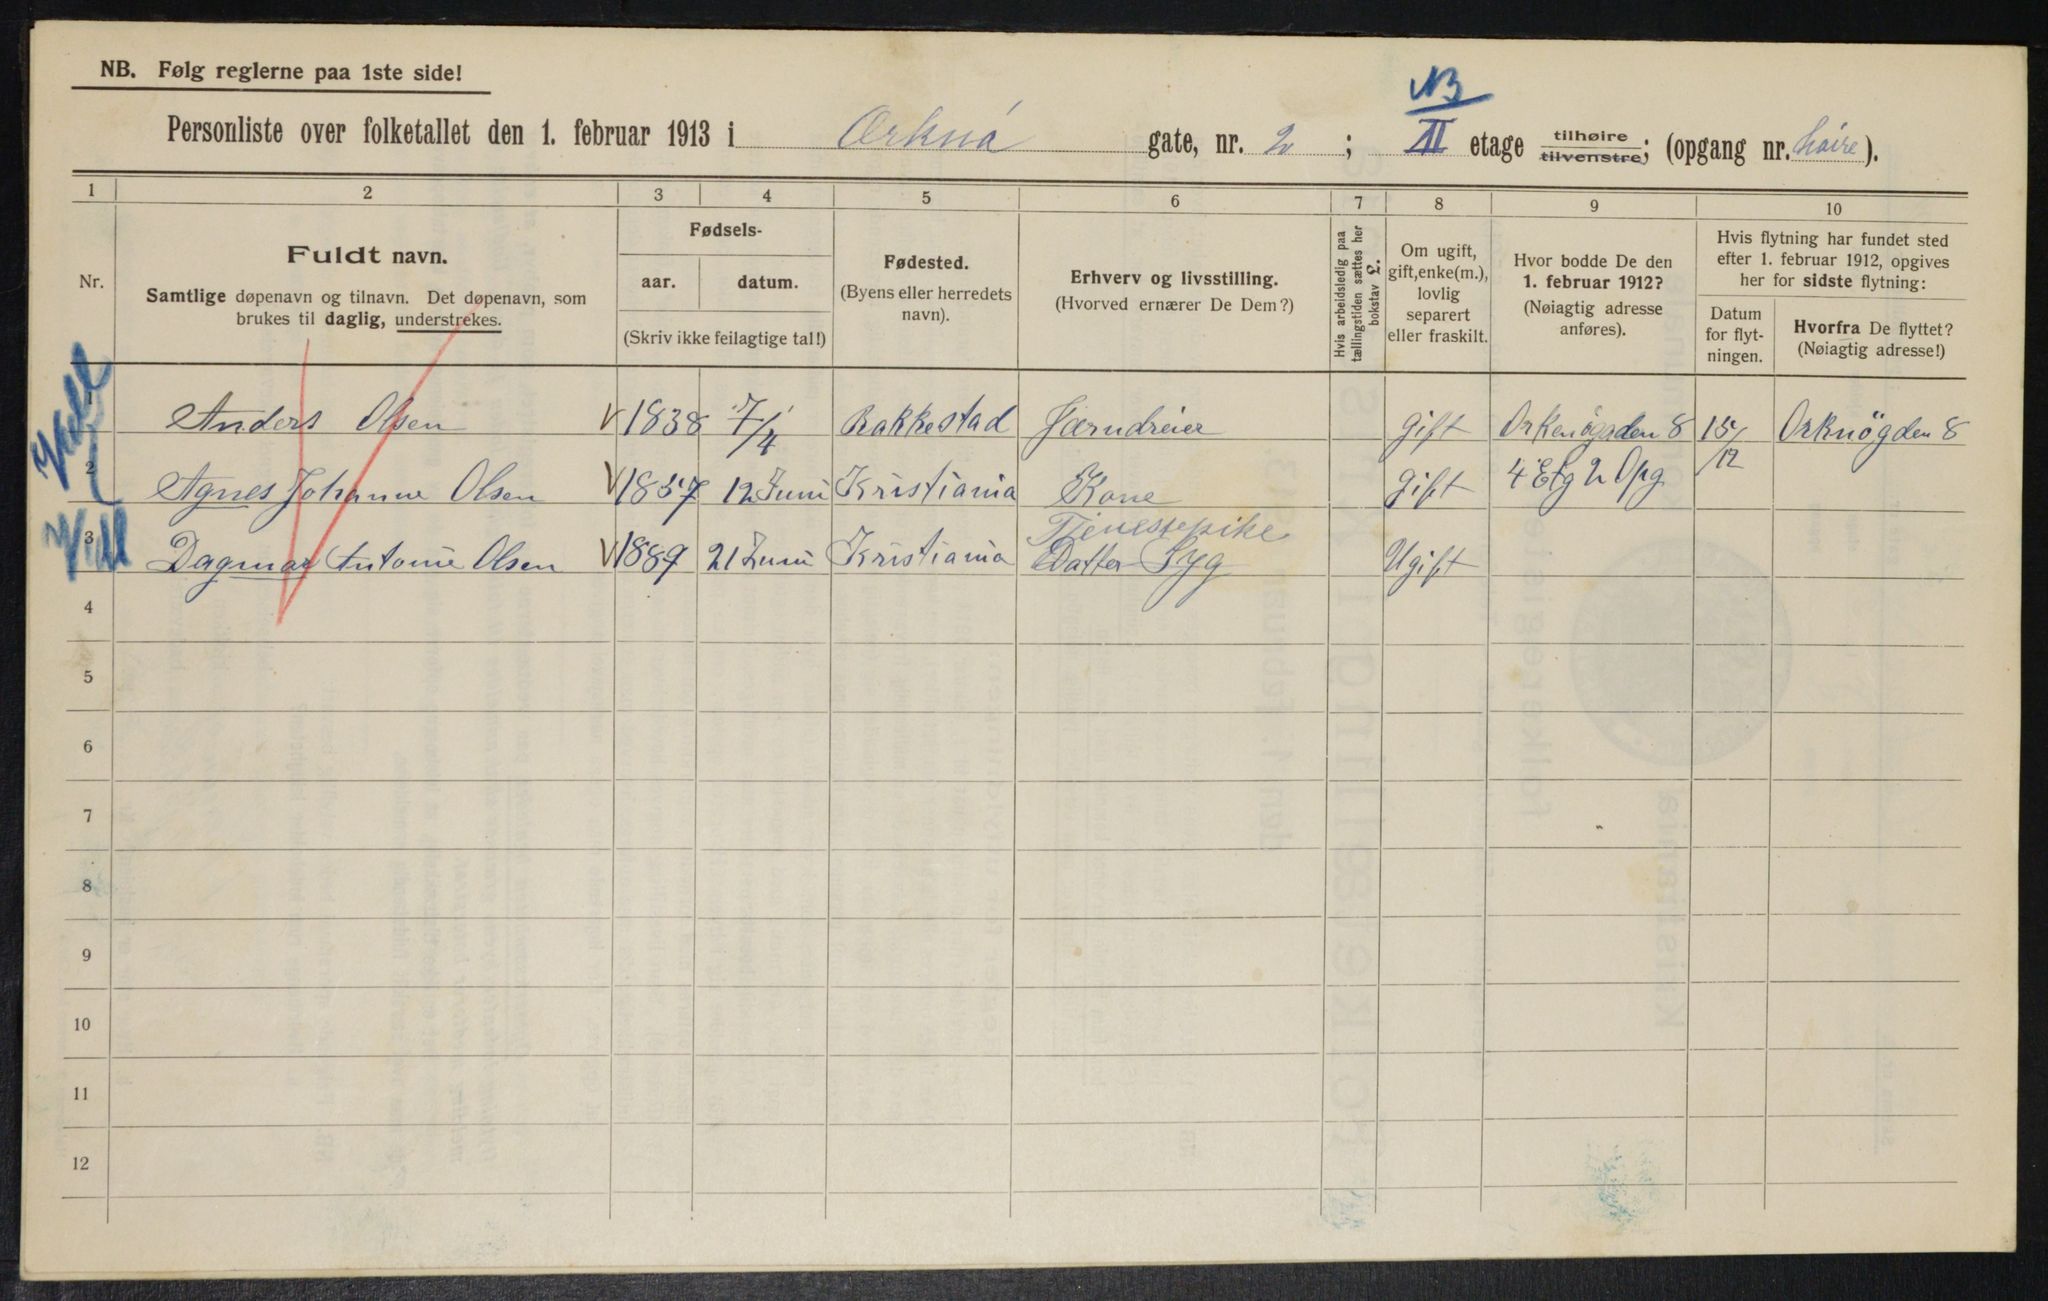 NB. Følg reglerne paa 1ste side!
NB
Personliste over folketallet den 1. februar 1913 i Orknö gate, nr. 2 ; III etage tilhøire tilvenstre; (opgang nr. höire).
1 2 3 4 5 6 7 8 9 10
Nr.
Fuldt navn.
Samtlige døpenavn og tilnavn. Det døpenavn, som
brukes til daglig, understrekes.
Fødsels-
aar. datum.
(Skriv ikke feilagtige tal!)
Fødested.
(Byens eller herredets
navn).
Erhverv og livsstilling.
(Hvorved ernærer De Dem?)
Hvis arbeidsledig paa
tællingstiden sættes her
bokstav L.
Om ugift,
gift, enke(m.),
lovlig
separert
eller fraskilt.
Hvor bodde De den
1. februar 1912?
(Nøiagtig adresse
anføres).
Hvis flytning har fundet sted
efter 1. februar 1912, opgives
her for sidste flytning:
Datum
for flyt-
ningen.
Hvorfra De flyttet?
(Nøiagtig adresse!)
1 Anders Olsen 1838 7/4 Rakkestad Jærndreier gift Orkenögaden 8 15/12 Orknögden 8
2 Agnes Johanne Olsen 1857 12 Juni Kristiania Kone gift 4 Etg 2 Opg
Tjenestepike
3 Dagmar Antonie Olsen 1889 21 Juni Kristiania Datter Syg Ugift
4
5
6
7
8
9
10
11
12